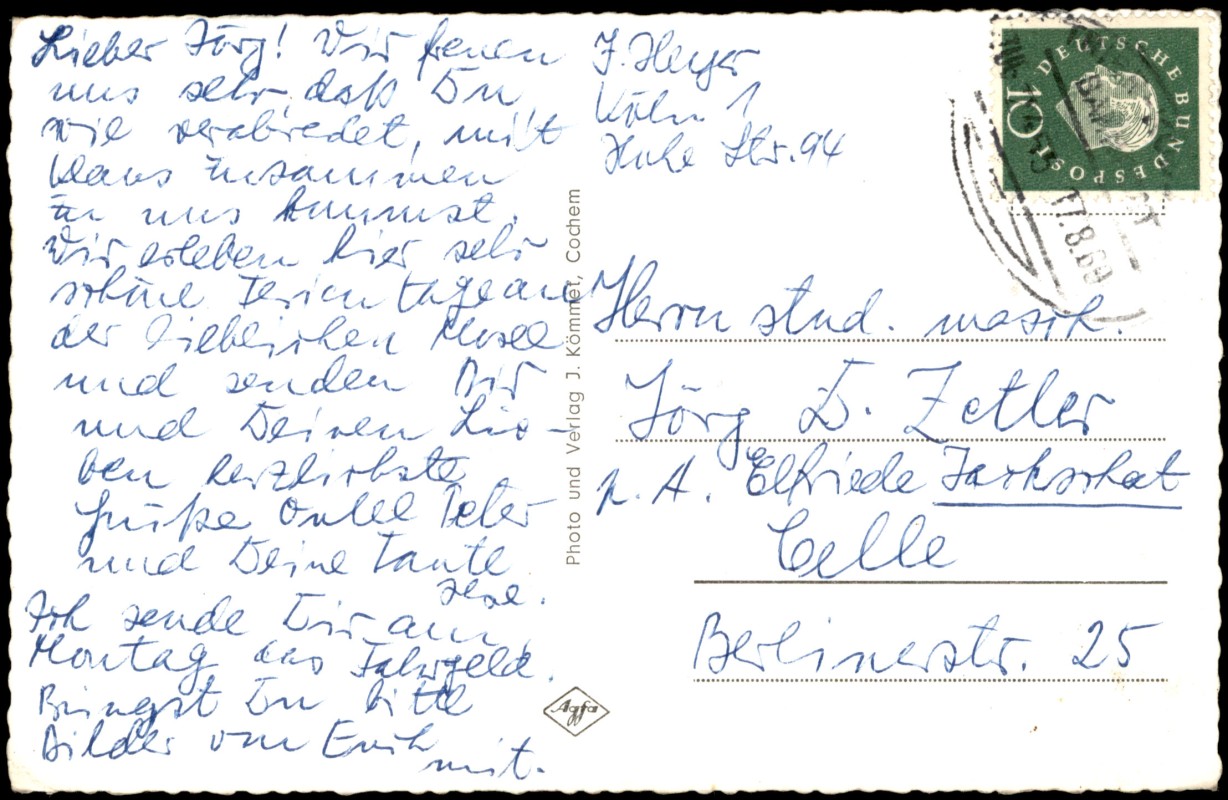 Lieber Jörg! Wir freuen
uns sehr, daß Du,
wie verabredet, mit
Klaus zusammen
zu uns kommst.
Wir erleben hier sehr
schöne Ferientage an
der lieblichen Mosel
und senden Dir
und Deinen Lie-
ben herzlichste
Grüße Onkel Peter
und Deine Tante
Ich sende Dir am
Montag das Fahrgeld.
Bringst Du bitte
Bilder von Erich
mit.
Photo und Verlag J. Kömmet, Cochem
Agfa
Köln 1
Hohe Str. 94
DEUTSCHE BUNDESPOST
10
17.8.60
Herrn stud. musik.
Jörg D. Zetler
p. A. Elfriede Jackschat
Celle
Berlinerstr. 25